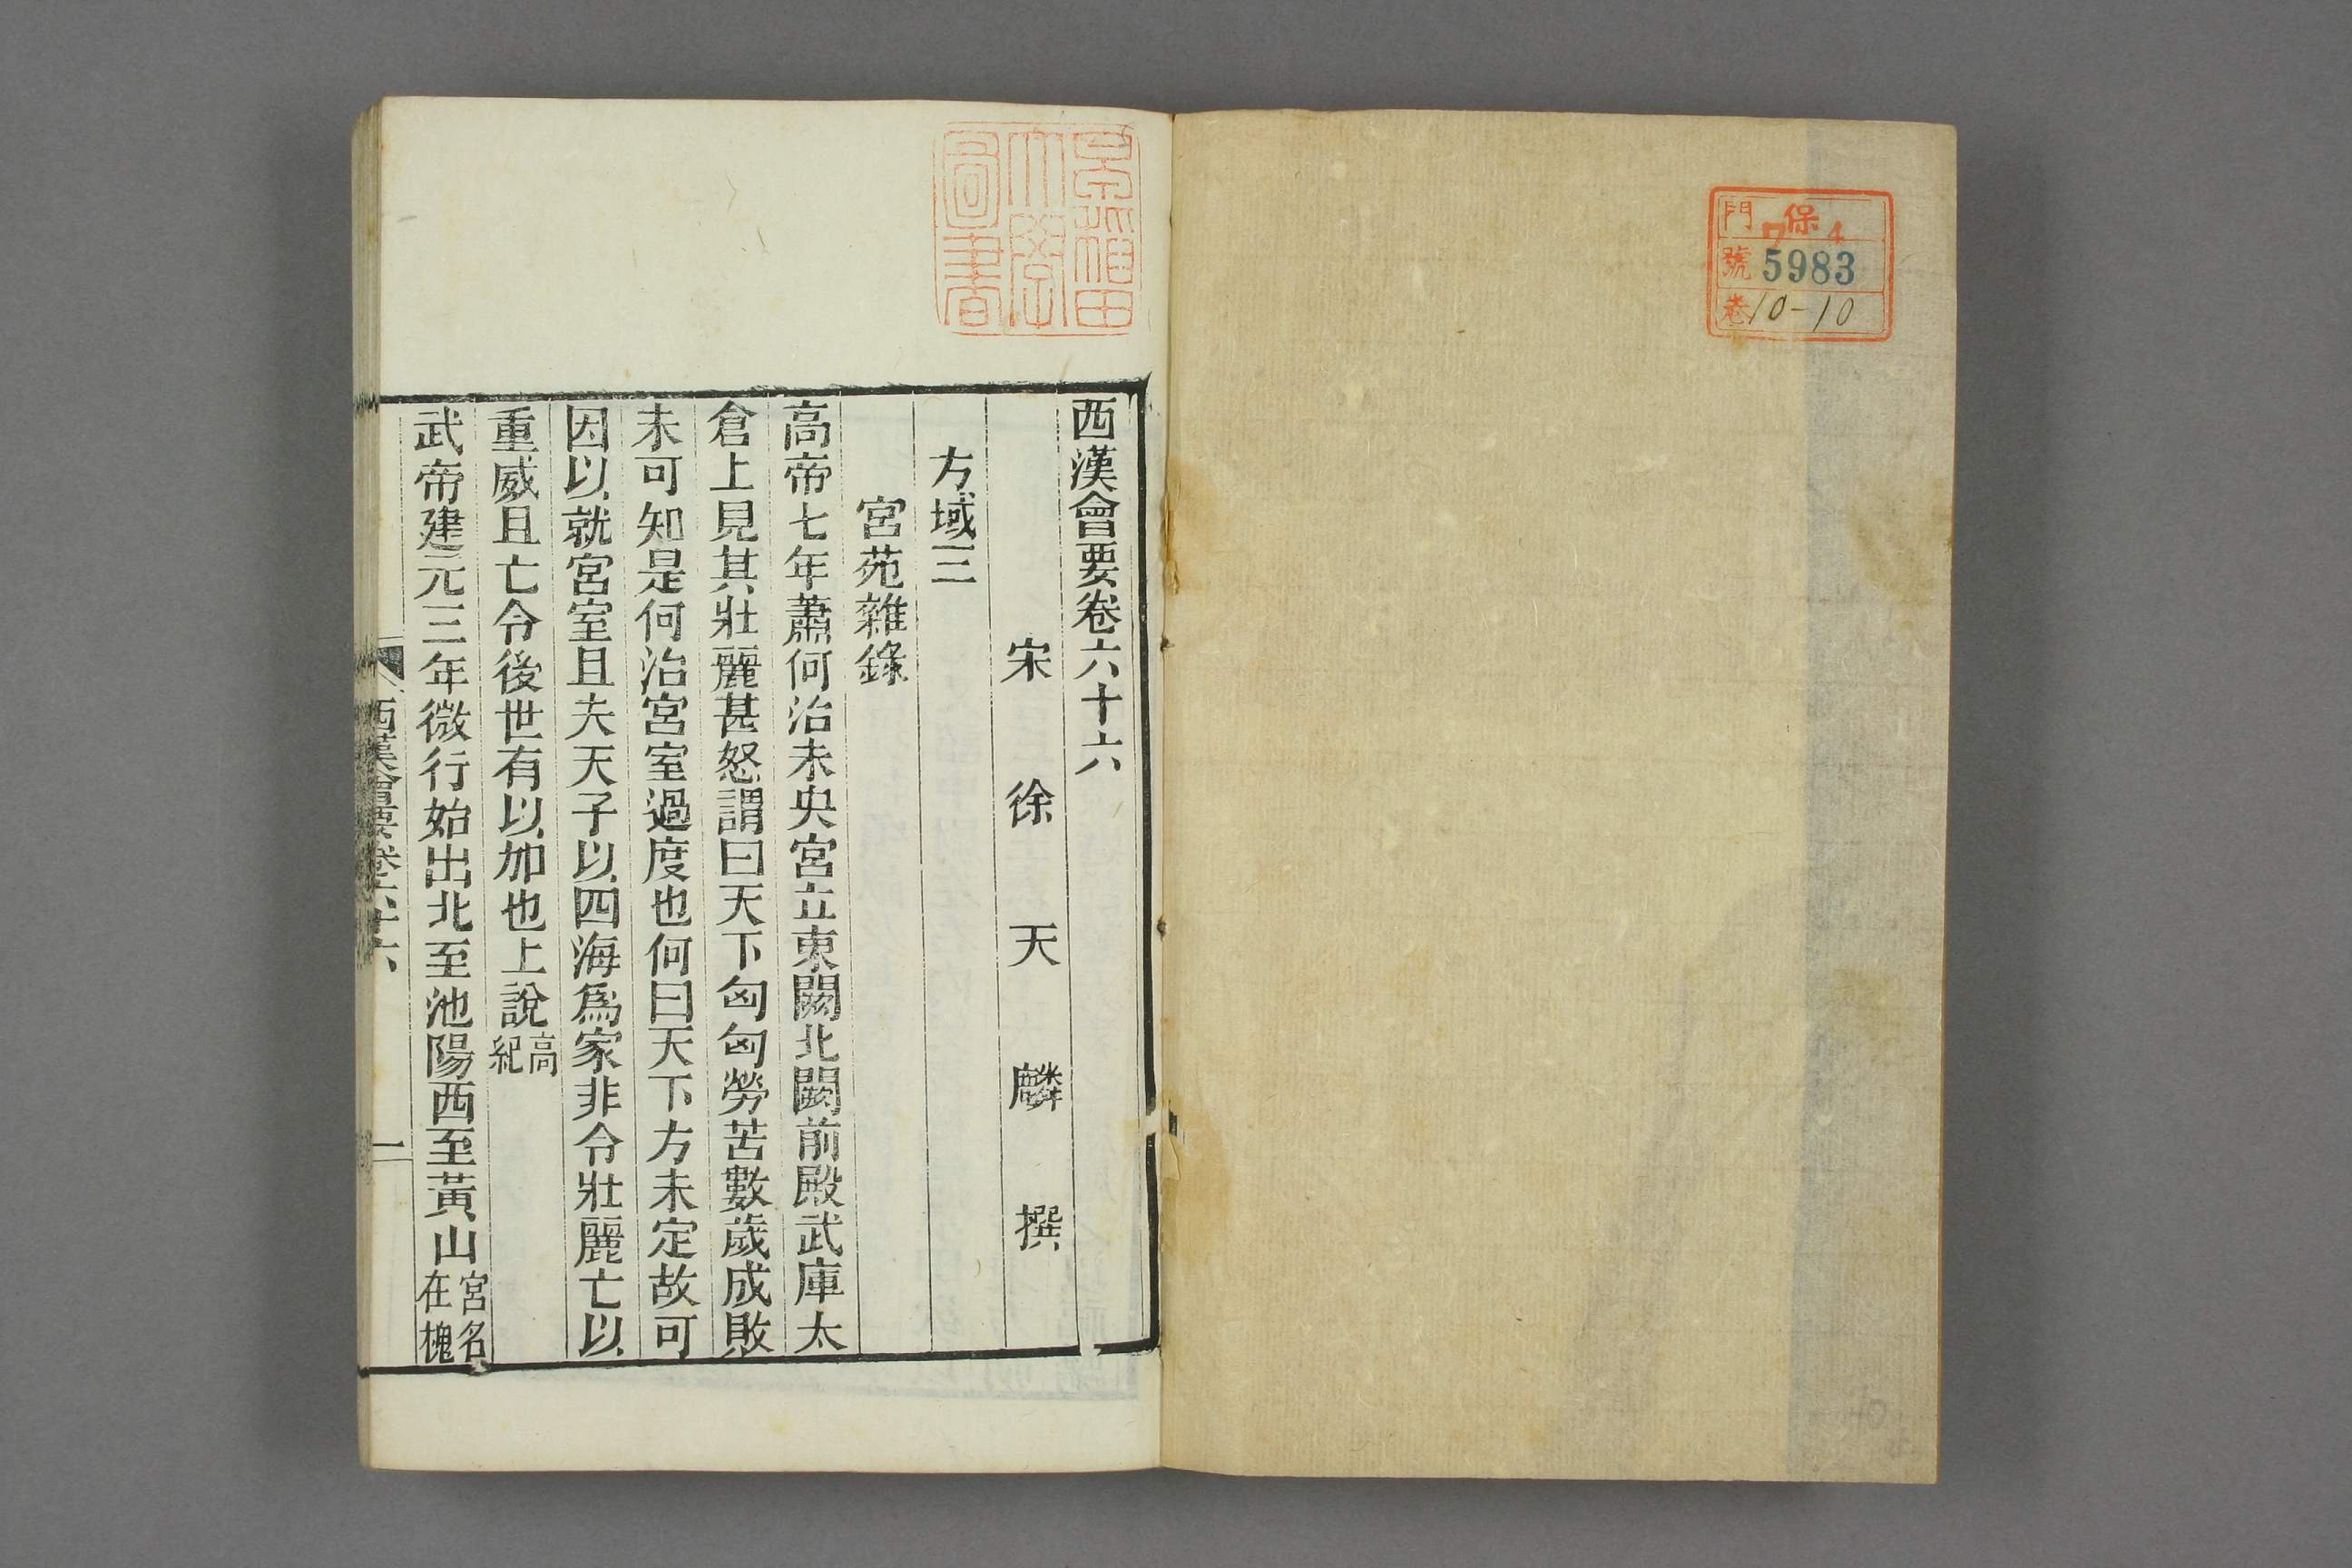 門 保
7 4
號 5983
卷 10-10
早稲田
大學
圖書
西漢會要卷六十六
宋徐天麟撰
方域三
宮苑雜錄
高帝七年蕭何治未央宮立東闕北闕前殿武庫太
倉上見其壯麗甚怒謂曰天下匈匈勞苦數歲成敗
未可知是何治宮室過度也何曰天下方未定故可
因以就宮室且夫天子以四海爲家非令壯麗亡以
重威且亡令後世有以加也上說高紀
武帝建元三年微行始出北至池陽西至黃山宮名在槐
西漢會要卷六十六
一